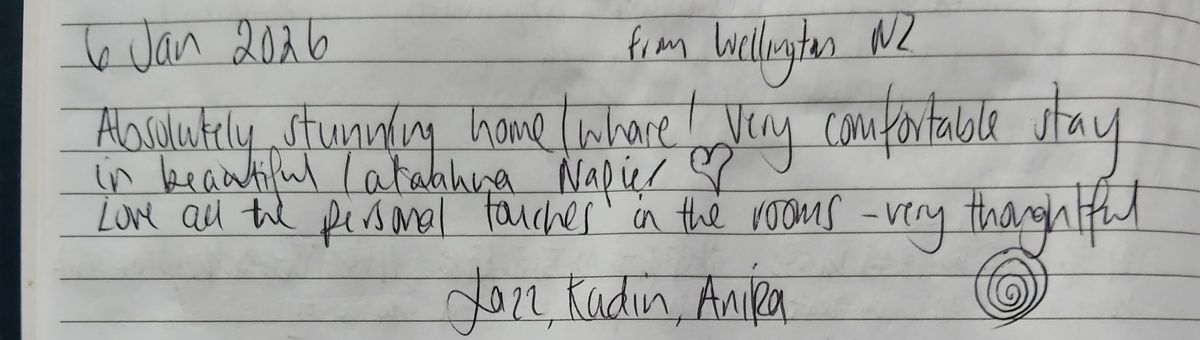 6 Jan 2026 from Wellington NZ
Absolutely stunning home/whare! Very comfortable stay
in beautiful Napier ♡
Love all the personal touches in the rooms - very thoughtful
Jazz, Kadin, Anika